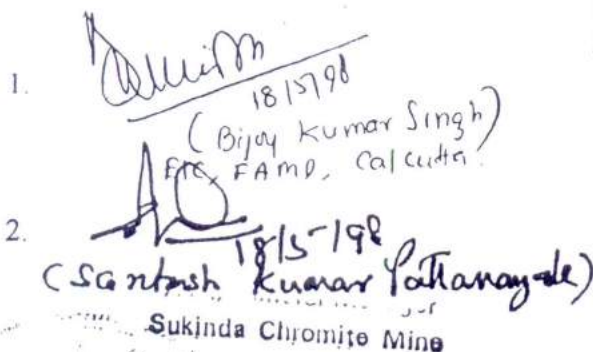 1.
18/5/98
(Bijoy Kumar Singh)
FAMD, Calcutta.
2.
18/5/98
(Santosh Kumar Pattanayak)
Sukinda Chromite Mine